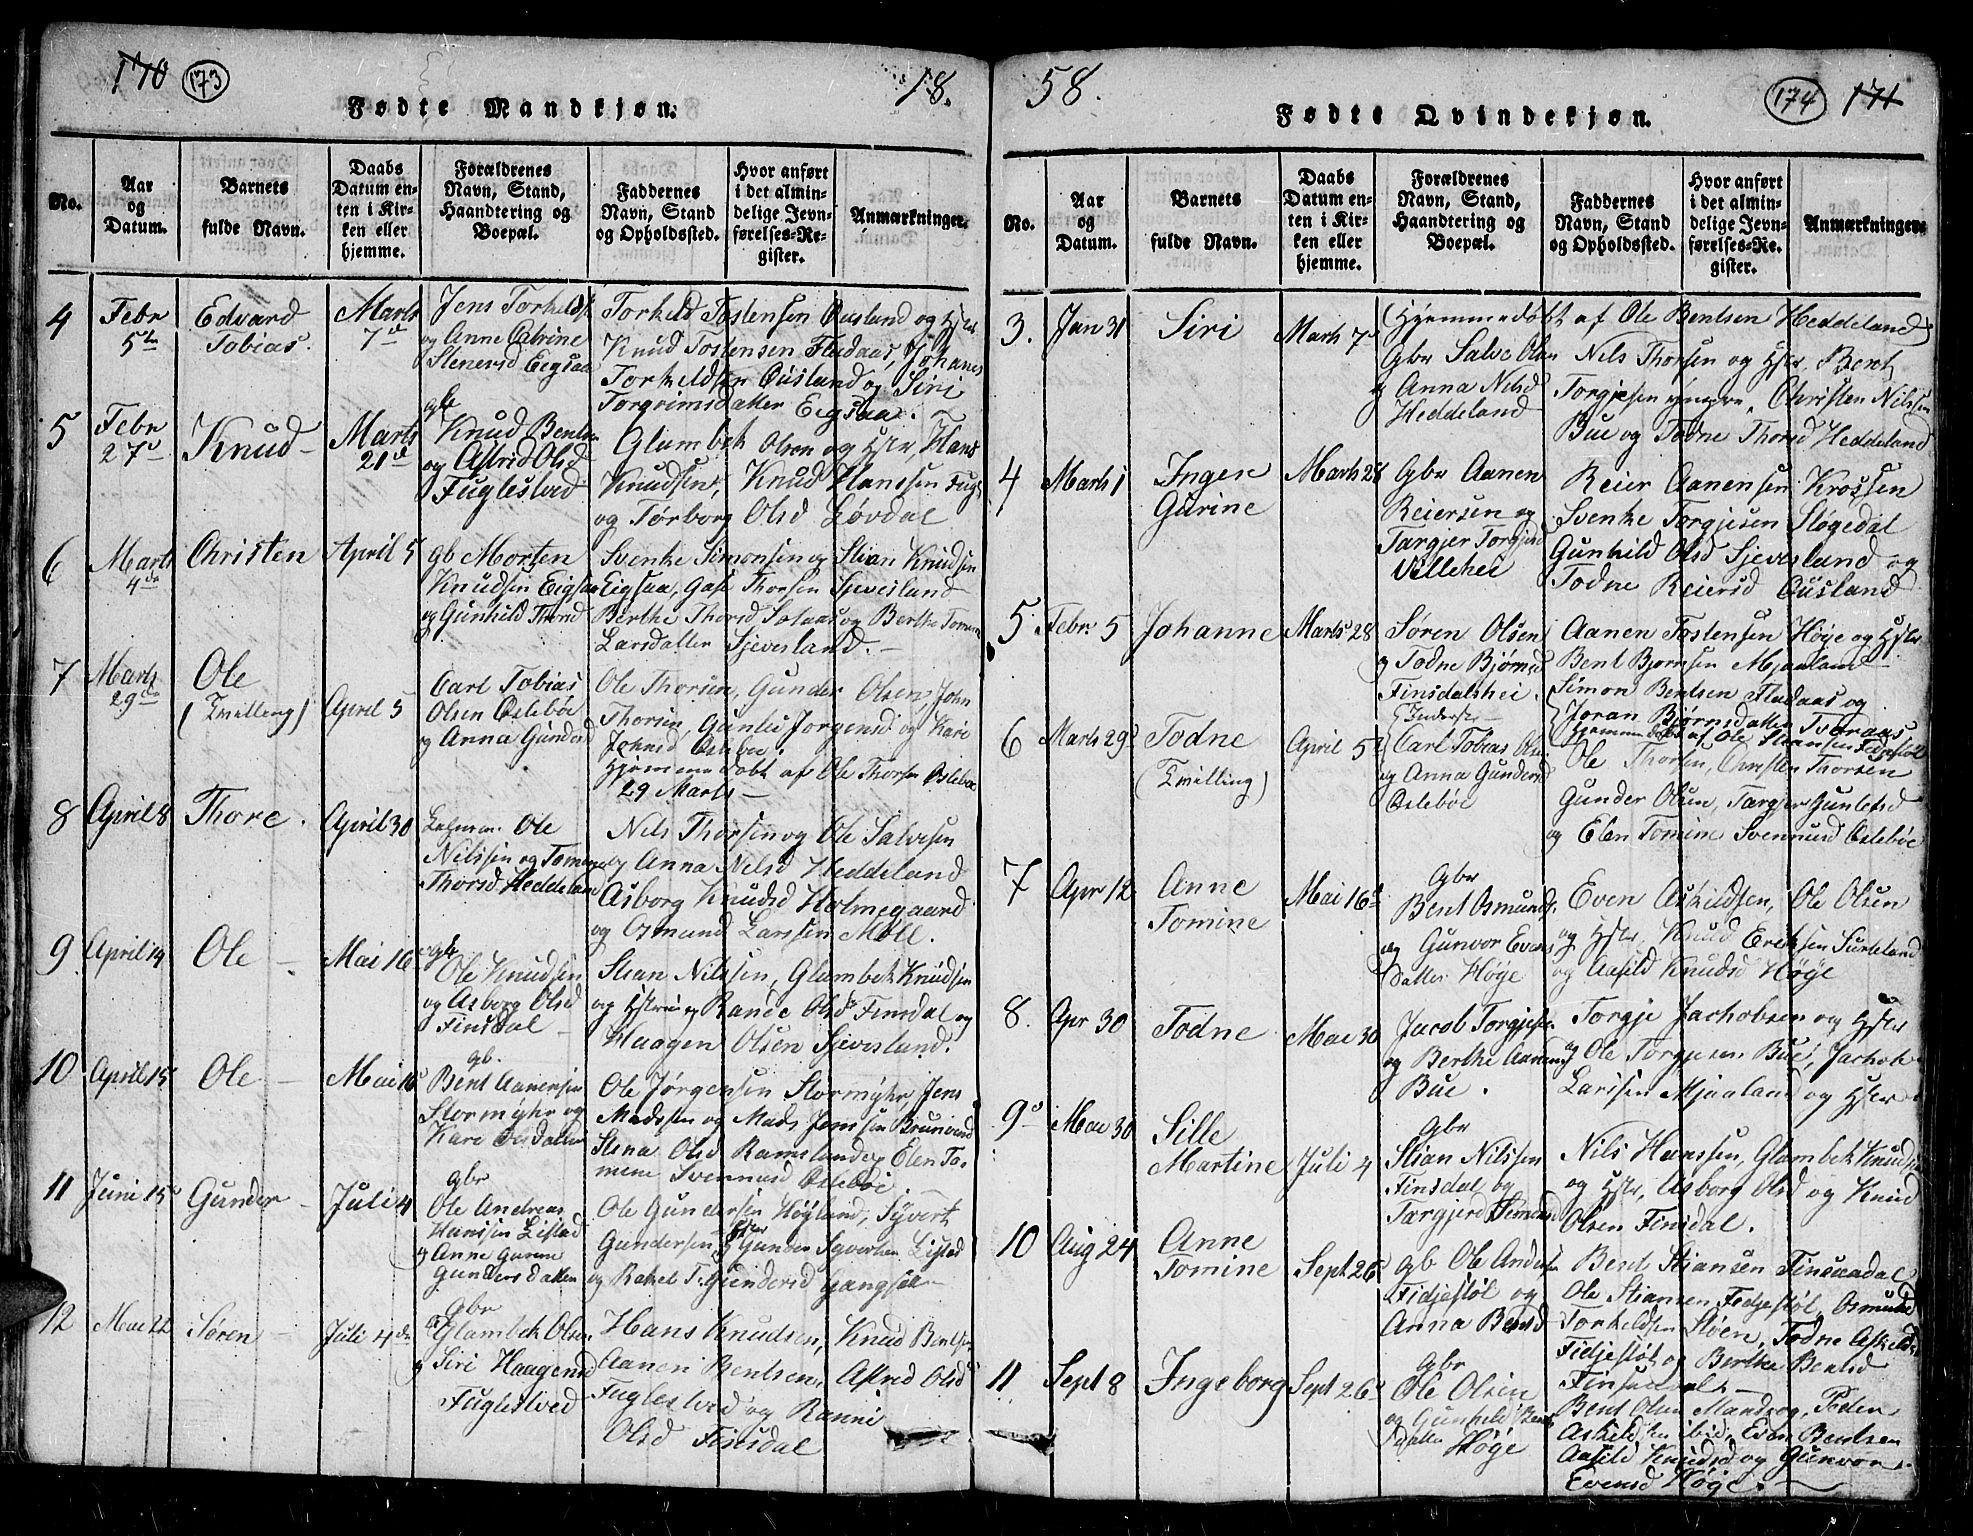 170 173 18.
Fødte Mandkjøn.
No.
Aar og Datum.
Barnets fulde Navn.
Daabs Datum enten i Kirken eller hjemme.
Forældrenes Navn, Stand, Haandtering og Boepæl.
Faddernes Navn, Stand og Opholdssted.
Hvor anført i det almindelige Jevnførelses-Register.
Anmærkninger.
4 Febr 5te
Edvard
Tobias.
Marts 7de
Jens Torkelds
og Anne Catrine
Stenersd Eigsaa
Torkeld Tostensen Ousland og Hstr
Knud Tostensen Fladaas, Johanes
Torkeldsen Ousland og Siri
Torgrimsdatter Eigsaa.
5 Febr 27de
Knud
Marts 21de
gb
Knud Bentsen
og Astrid Olsd
Fuglestved
Glambek Olsen og Hstr, Hans
Knudsen, Knud Hanssen Fugl
og Torborg Olsd Løvdal
6 Marts 4de
Christen
April 5
gb Morten
Knudsen Eigsaa
og Gunhild Thorsd
Svenke Simonsen og Stian Knudsen
Eigsaa, Thorsen Sjevesland
Berthe Thorsd og Berthe Tomine
Larsdatter Sjevesland.
7 Marts 29de
Ole
(Tvilling)
April 5
Carl Tobias
Olsen Oslebøe
og Anna Gundersd
Ole Thorsen, Gunder Olsen, John
Thorsen, Gunlei Jorgensd og Kari
Johnsd Oslebøe.
Hjemmedøbt af Ole Thorsen Oslebøe
29 Marts
8 April 8
Thore.
April 30
Ole
Nilssen og Tomine
Thorsd Heddeland
Nils Thorsen og Ole Salvesen
og Anna Nelsd Heddeland
Asborg Knudsd Holmegaard
og Osmund Larssen Moll.
9 April 14
Ole
Mai 16
gb
Ole Knudsen
og Asborg Olsd
Finsdal
Stian Nilssen, Glambek Knudsen
og Hstruer Rande Olsd Finsdal og
Haagen Olsen Sjevesland.
10 April 15
Ole
Mai 16
gb.
Bent Aanensen
Stormyhr og
Kari Olsdatter
Ole Jørgensen Stormyhr, Jens
Madssen og Mads Jenssen Brunvand
Stena Olsd Ramsland og Elen To-
mine Svennusd Oslebøe
11 Juni 15
Gunder
Juli 4
gbr
Ole Andreas
Hanssen Listad
og Anne Gurine
Gundersdatter
Ole Gundersen Høyland, Syvert
Gundersen, Hstr Gunder Syvertsen Listad
og Rakel T. Gundersd Gangsaa
12 Mai 22
Søren
Juli 4de
gbr
Glambek Olsen
og Siri Haagensd
Fuglestved
Hans Knudsen, Knud Bentsen
Aanen Bentsen, Astrid Olsd
Fuglestved og Ranni
Olsd Finsdal
58. 174 171
Fødte Qvindekjøn.
No.
Aar og Datum.
Barnets fulde Navn.
Daabs Datum enten i Kirken eller hjemme.
Forældrenes Navn, Stand, Haandtering og Boepæl.
Faddernes Navn, Stand og Opholdssted.
Hvor anført i det almindelige Jevnførelses-Register.
Anmærkninger.
3. Jan 31
Siri
Marts 7
(Hjemmedøbt af Ole Bentsen Heddeland)
Gbr Salve Olsen
og Anna Nelsd
Heddeland
Nils Thorsen og Hstr, Bent
Torgjesen yngre, Christen Nilssen
Bue og Todne Thorsd Heddeland
4 Marts 1
Inger
Gurine
Marts 28
Gbr Aanen
Reiersen og
Targjer Torgjersd
Villehei
Reier Aanensen Krossen
Svenke Torgjesen Støgedal
Gunhild Olsd Sjevesland og
Todne Reiersd Ousland
5. Febr. 5
Johanne
Marts 28
Søren Olsen
og Todne Bjørnsd
Finsdalshei.
Inderster
Aanen Tostensen Høye og Hstr
Bent Bjornsen Mjaaland
Simon Bentsen Fladaas og
Joran Bjørnsdatter Tveraas
6 Marts 29
Todne
(Tvilling)
April 5
Carl Tobias Olsen
og Anna Gundersd
Oslebøe
Hjemmedøbt af Ole Stiansen Fidjestøl
Ole Thorsen, Christen Thorsen
Gunder Olsen, Targjer Gunleisd
og Elen Tomine Svennusd Oslebøe
7 Apr 12
Anne
Tomine
Mai 16
Gbr
Bent Osmunds.
og Gunvor Evens
datter Høye
Even Askildsen, Ole Olsen
og Hstr, Knud Eriksen Surteland
og Aasild Knudsd Høye
8. Apr 30
Todne
Mai 30
Jacob Torgjesen
og Berthe Aanensd
Bue.
Torgje Jachobsen og Hstr
og Ole Torgjesen Bue, Jachob
Larssen Mjaaland og Hstr
9 Mai 30
Sille
Martine
Juli 4
Gbr
Stian Nilssen
Finsdal og
Targjerd Simonsd
Nils Hanssen, Glambek Knudsen
og Hstr, Asborg Olsd og Knud
Olsen Finsdal.
10 Aug 24
Anne
Tomine
Sept 26
gb Ole Andersen
Fidjestøl og
Anna Bentsd
Bent Stiansen Finsaadal
Ole Stiansen Fidjestøl, Osmund
Torkeldsen Støen, Todne Askilds
Fidjestøl og Berthe Bentsd
Finsaadal
11 Sept 8
Ingeborg
Sept 26
Gbr
Ole Olsen
og Gunhild Bents
datter Høye
Bent Olsen Mandrog, Peder
Askildsen ibid, Even Bentsen
Aasild Knudsd og Gunvor
Evensd Høye.